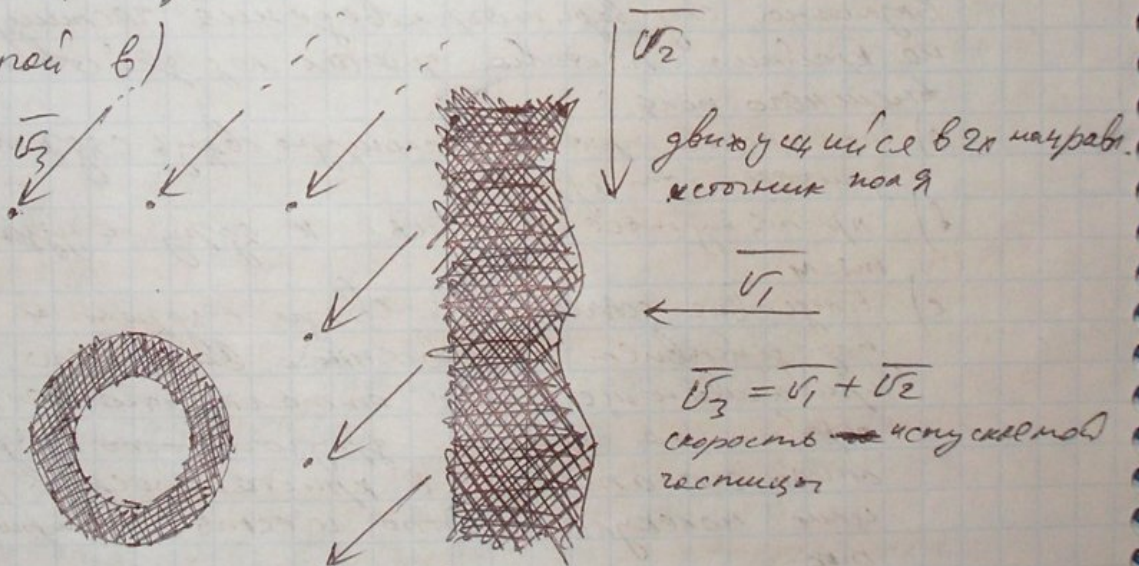 в)
v̅₂
v̅₃
движущийся в 2х направл.
источник поля
v̅₁
v̅₃ = v̅₁ + v̅₂
скорость испускаемой
частицы